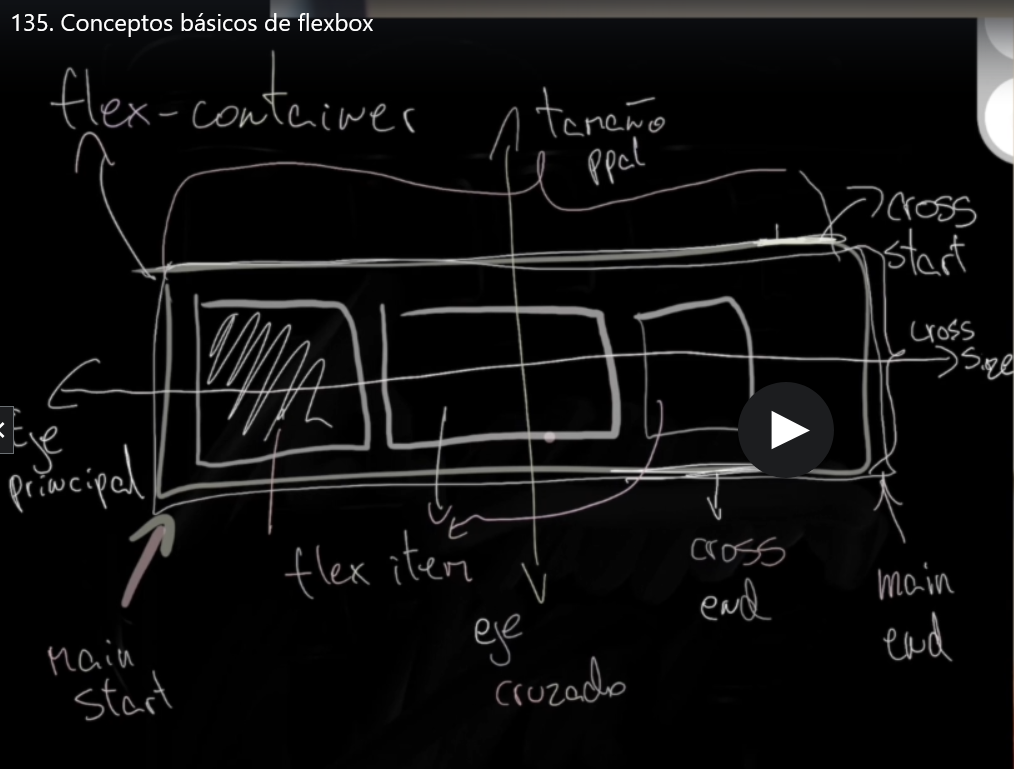 135. Conceptos básicos de flexbox
flex-container
tamaño
ppal
cross
start
cross
size
Eje
principal
flex item
cross
end
main
end
eje
cruzado
Main
start